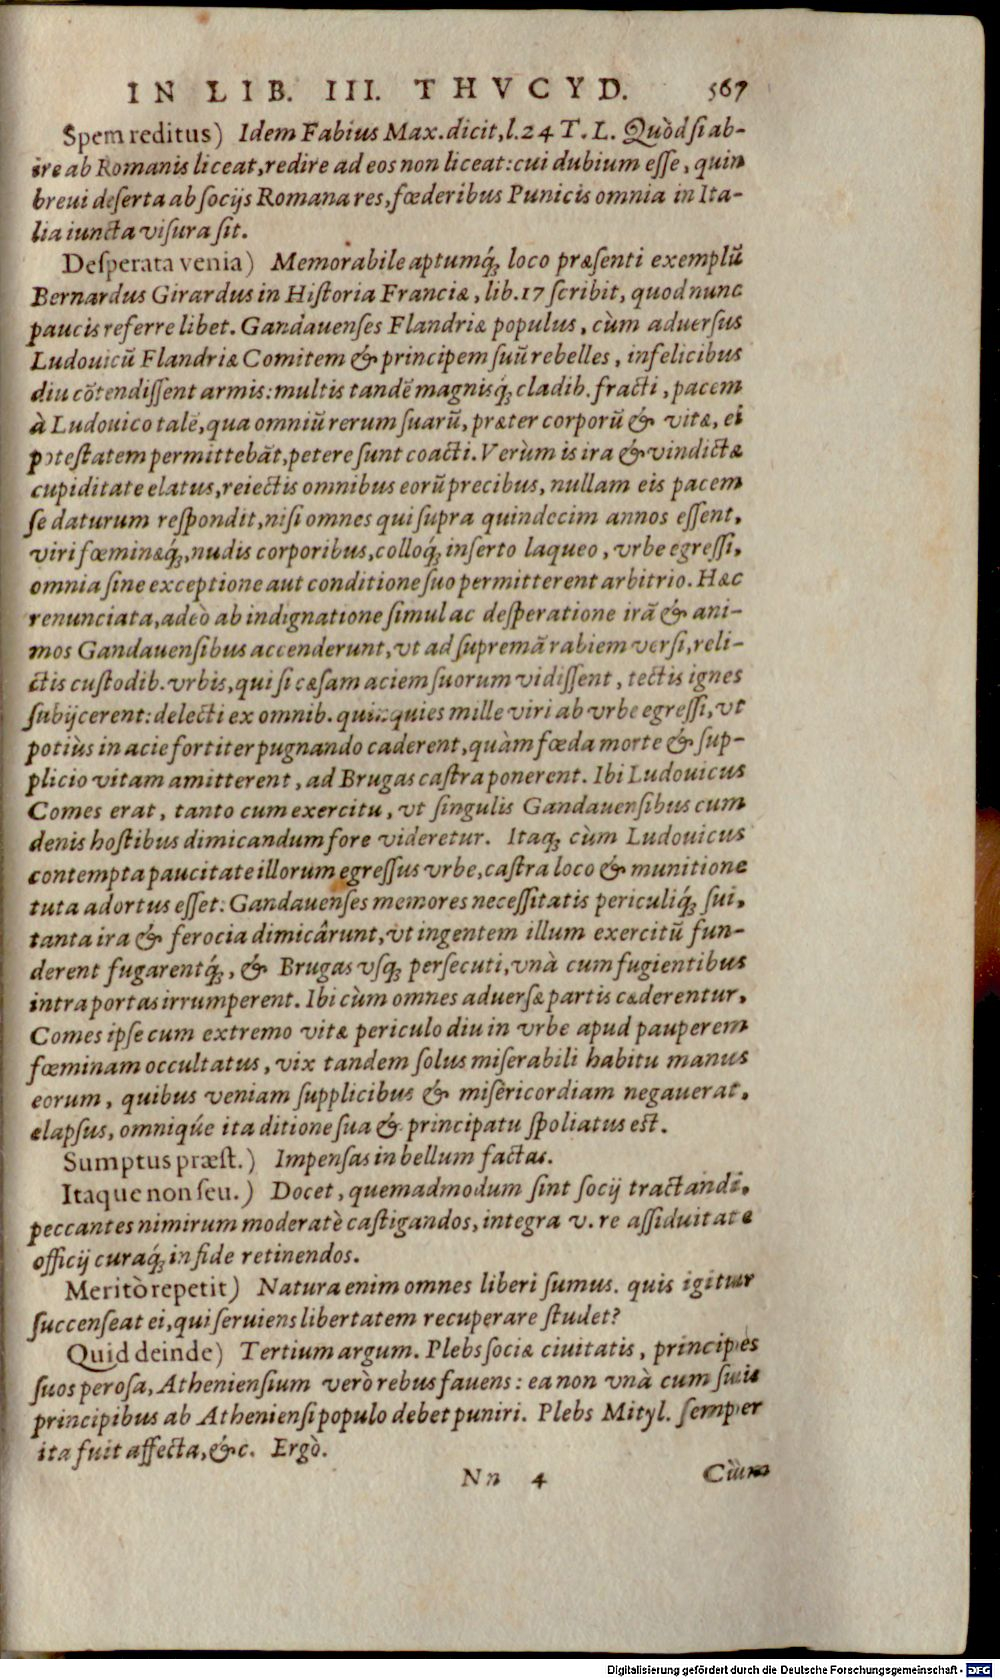 IN LIB. III. THVCYD. 567
Spem reditus) Idem Fabius Max. dicit, l. 24 T. L. Quòd si ab-
ire ab Romanis liceat, redire ad eos non liceat: cui dubium esse, quin
breui deserta ab socijs Romana res, fœderibus Punicis omnia in Ita-
lia iuncta visura sit.
Desperata venia) Memorabile aptumq́; loco præsenti exemplũ
Bernardus Girardus in Historia Franciæ, lib. 17 scribit, quod nunc
paucis referre libet. Gandauenses Flandriæ populus, cùm aduersus
Ludouicũ Flandriæ Comitem & principem suũ rebelles, infelicibus
diu cõtendissent armis: multis tandẽ magnisq́; cladib. fracti, pacem
à Ludouico talẽ, qua omniũ rerum suarũ, præter corporũ & vitæ, ei
potestatem permittebãt, petere sunt coacti. Verùm is ira & vindictæ
cupiditate elatus, reiectis omnibus eorũ precibus, nullam eis pacem
se daturum respondit, nisi omnes qui supra quindecim annos essent,
viri fœminæq́;, nudis corporibus, colloq́; inserto laqueo, vrbe egressi,
omnia sine exceptione aut conditione suo permitterent arbitrio. Hæc
renunciata, adeò ab indignatione simul ac desperatione irã & ani-
mos Gandauensibus accenderunt, vt ad supremã rabiem versi, reli-
ctis custodib. vrbis, qui si cæsam aciem suorum vidissent, tectis ignes
subijcerent: delecti ex omnib. quinquies mille viri ab vrbe egressi, vt
potiùs in acie fortiter pugnando caderent, quàm fœda morte & sup-
plicio vitam amitterent, ad Brugas castra ponerent. Ibi Ludouicus
Comes erat, tanto cum exercitu, vt singulis Gandauensibus cum
denis hostibus dimicandum fore videretur. Itaq; cùm Ludouicus
contempta paucitate illorum egressus vrbe, castra loco & munitione
tuta adortus esset: Gandauenses memores necessitatis periculiq́; sui,
tanta ira & ferocia dimicârunt, vt ingentem illum exercitũ fun-
derent fugarentq́;, & Brugas vsq; persecuti, vnà cum fugientibus
intra portas irrumperent. Ibi cùm omnes aduersæ partis cæderentur,
Comes ipse cum extremo vitæ periculo diu in vrbe apud pauperem
fœminam occultatus, vix tandem solus miserabili habitu manus
eorum, quibus veniam supplicibus & misericordiam negauerat,
elapsus, omniqúe ita ditione sua & principatu spoliatus est.
Sumptus præst.) Impensas in bellum factas.
Itaque non seu.) Docet, quemadmodum sint socij tractandi,
peccantes nimirum moderatè castigandos, integra v. re assiduitate
officij curaq́; in fide retinendos.
Meritò repetit) Natura enim omnes liberi sumus. quis igitur
succenseat ei, qui seruiens libertatem recuperare studet?
Quid deinde) Tertium argum. Plebs sociæ ciuitatis, principes
suos perosa, Atheniensium verò rebus fauens: ea non vnà cum suis
principibus ab Atheniensi populo debet puniri. Plebs Mityl. semper
ita fuit affecta, &c. Ergò.
Nn 4 Cùm
Digitalisierung gefördert durch die Deutsche Forschungsgemeinschaft - DFG